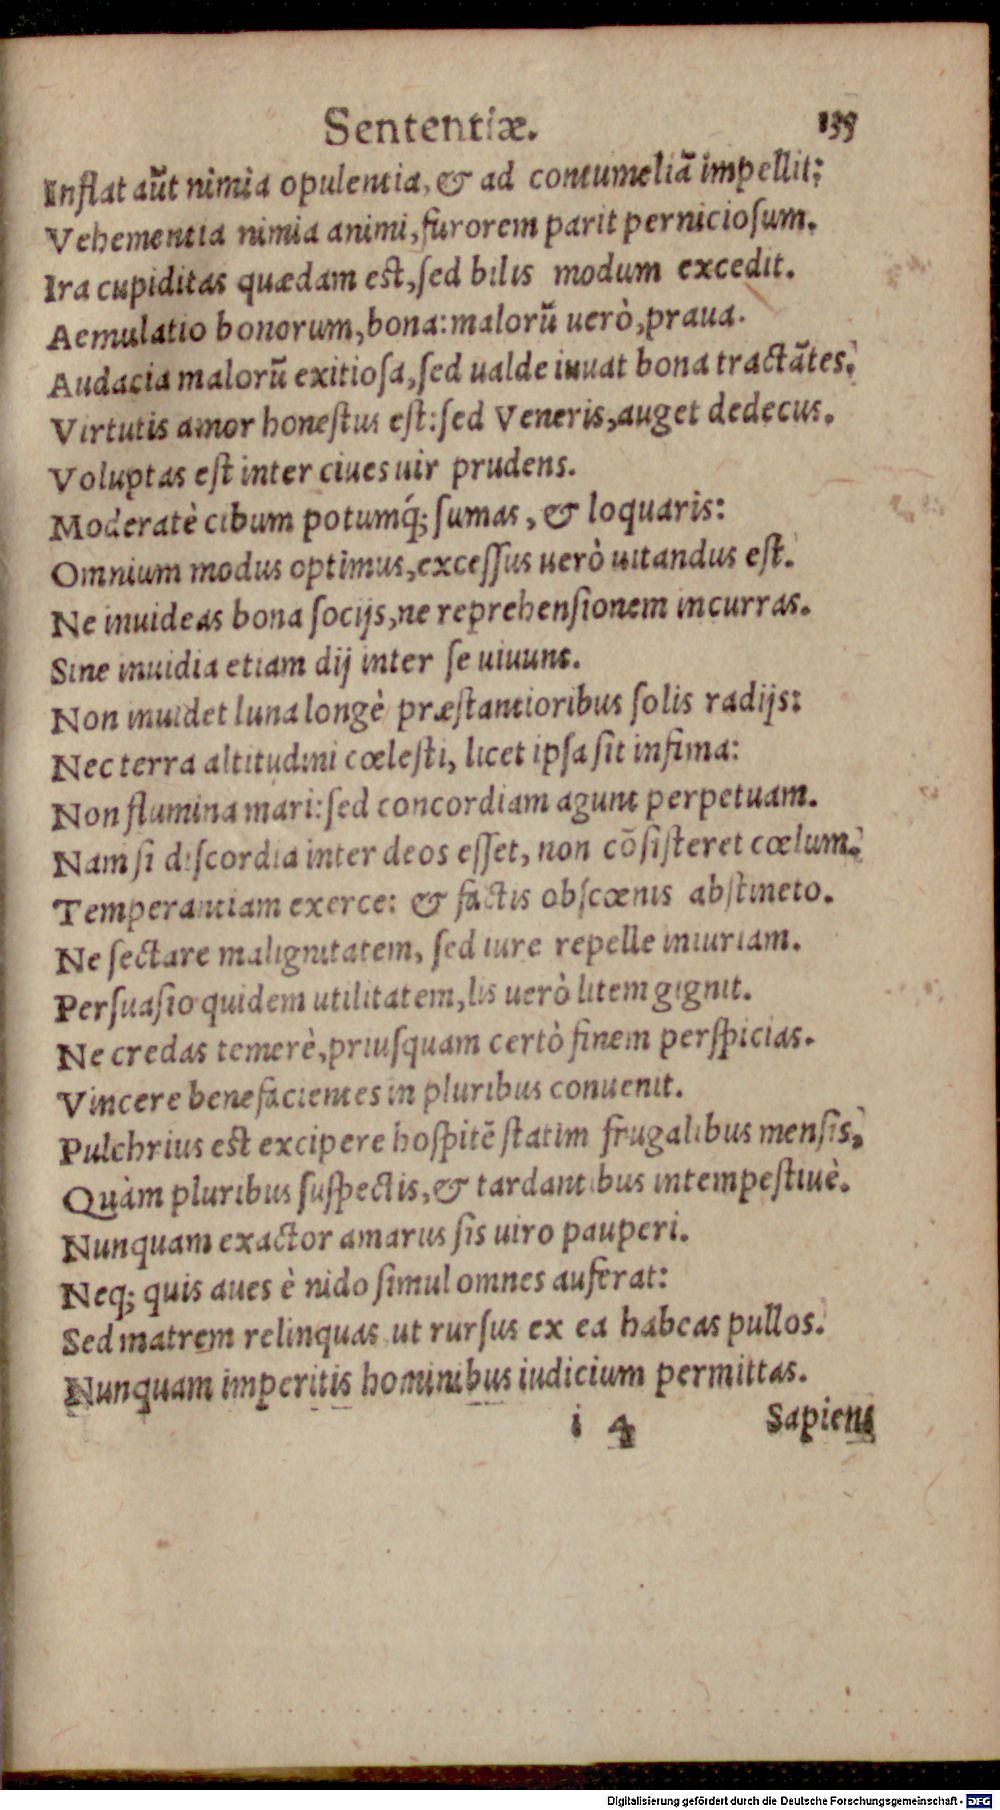 Sententiæ. 135
Inflat aũt nimia opulentia, & ad contumeliã impellit:
Vehementia nimia animi, furorem parit perniciosum.
Ira cupiditas quædam est, sed bilis modum excedit.
Aemulatio bonorum, bona: malorũ uerò, praua.
Audacia malorũ exitiosa, sed ualde iuuat bona tractãtes.
Virtutis amor honestus est: sed Veneris, auget dedecus.
Voluptas est inter ciues uir prudens.
Moderatè cibum potumq́; sumas, & loquaris:
Omnium modus optimus, excessus uerò uitandus est.
Ne inuideas bona socijs, ne reprehensionem incurras.
Sine inuidia etiam dij inter se uiuunt.
Non inuidet luna longè præstantioribus solis radijs:
Nec terra altitudini cœlesti, licet ipsa sit infima:
Non flumina mari: sed concordiam agunt perpetuam.
Nam si discordia inter deos esset, non cõsisteret cœlum.
Temperantiam exerce: & factis obscœnis abstineto.
Ne sectare malignitatem, sed iure repelle iniuriam.
Persuasio quidem utilitatem, lis uerò litem gignit.
Ne credas temerè, priusquam certò finem perspicias.
Vincere benefacientes in pluribus conuenit.
Pulchrius est excipere hospitẽ statim frugalibus mensis,
Quàm pluribus suspectis, & tardantibus intempestiuè.
Nunquam exactor amarus sis uiro pauperi.
Neq; quis aues è nido simul omnes auferat:
Sed matrem relinquas ut rursus ex ea habeas pullos.
Nunquam imperitis hominibus iudicium permittas.
i 4 Sapiens
Digitalisierung gefördert durch die Deutsche Forschungsgemeinschaft - DFG